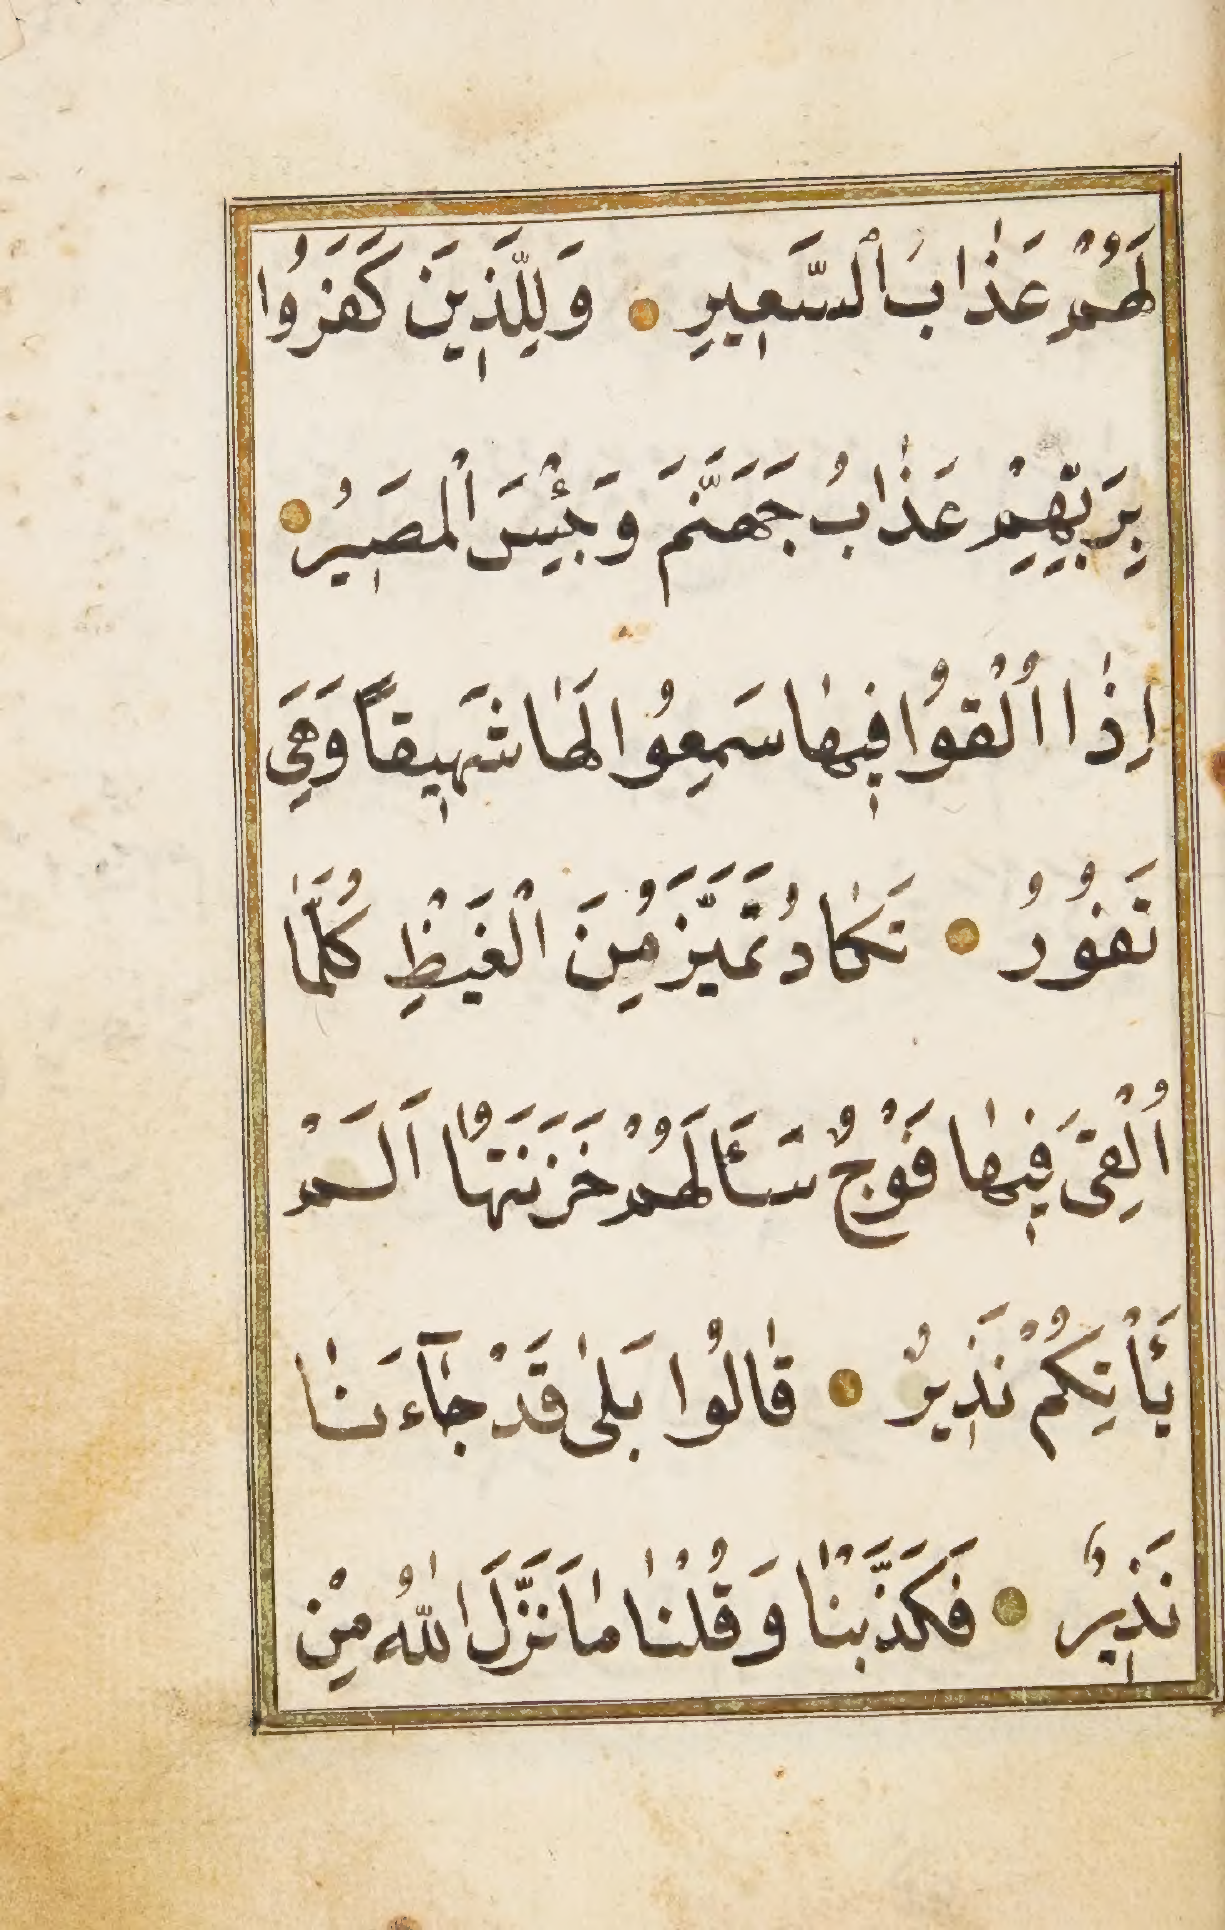 لَهُمْ عَذَابَ ٱلسَّعِيرِ وَلِلَّذِينَ كَفَرُوا
بِرَبِّهِمْ عَذَابُ جَهَنَّمَ وَبِئْسَ الْمَصِيرُ
اِذٰا اُلْقُوا فِيهٰا سَمِعُوا لَهٰا شَهِيقاً وَهِىَ
تَفُورُ
تَكٰادُ تَمَيَّزُ مِنَ الْغَيْظِ كُلَّمٰا
اُلْقِىَ فِيهٰا فَوْجٌ سَئَالَهُمْ خَزَنَتُهٰا اَلَمْ
يَأْتِكُمْ نَذِيرٌ قٰالُوا بَلىٰ قَدْ جٰآءَنٰا
نَذِيرٌ فَكَذَّبْنٰا وَقُلْنٰا مٰا نَزَّلَ اللّٰهُ مِنْ